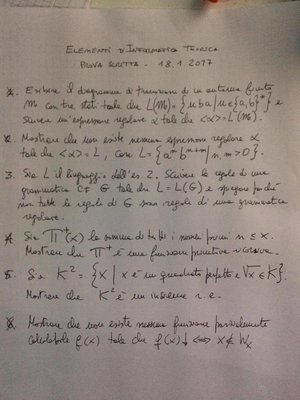 ELEMENTI D'INFORMATICA TEORICA
PROVA SCRITTA - 18.1.2017
1. Esibire il diagramma di transizioni di un automa finito
M con tre stati tale che L(M) = {uba | u ∈ {a,b}*} e
scrivere un'espressione regolare α tale che <α> = L(M).
2. Mostrare che non esiste nessuna espressione regolare α
tale che <α> = L, con L = {a^m b^{n+m} | n, m > 0}.
3. Sia L il linguaggio dell'es. 2. Scrivere le regole di una
grammatica CF G tale che L = L(G) e spiegare perché
non tutte le regole di G sono regole di una grammatica
regolare.
4. Sia Π⁺(x) la somma di tutti i numeri primi n ≤ x.
Mostrare che Π⁺ è una funzione primitiva ricorsiva.
5. Sia K² = {x | x è un quadrato perfetto e √x ∈ K}.
Mostrare che K² è un insieme r.e.
6. Mostrare che non esiste nessuna funzione parzialmente
calcolabile f(x) tale che f(x)↓ <=> x ∉ W_x